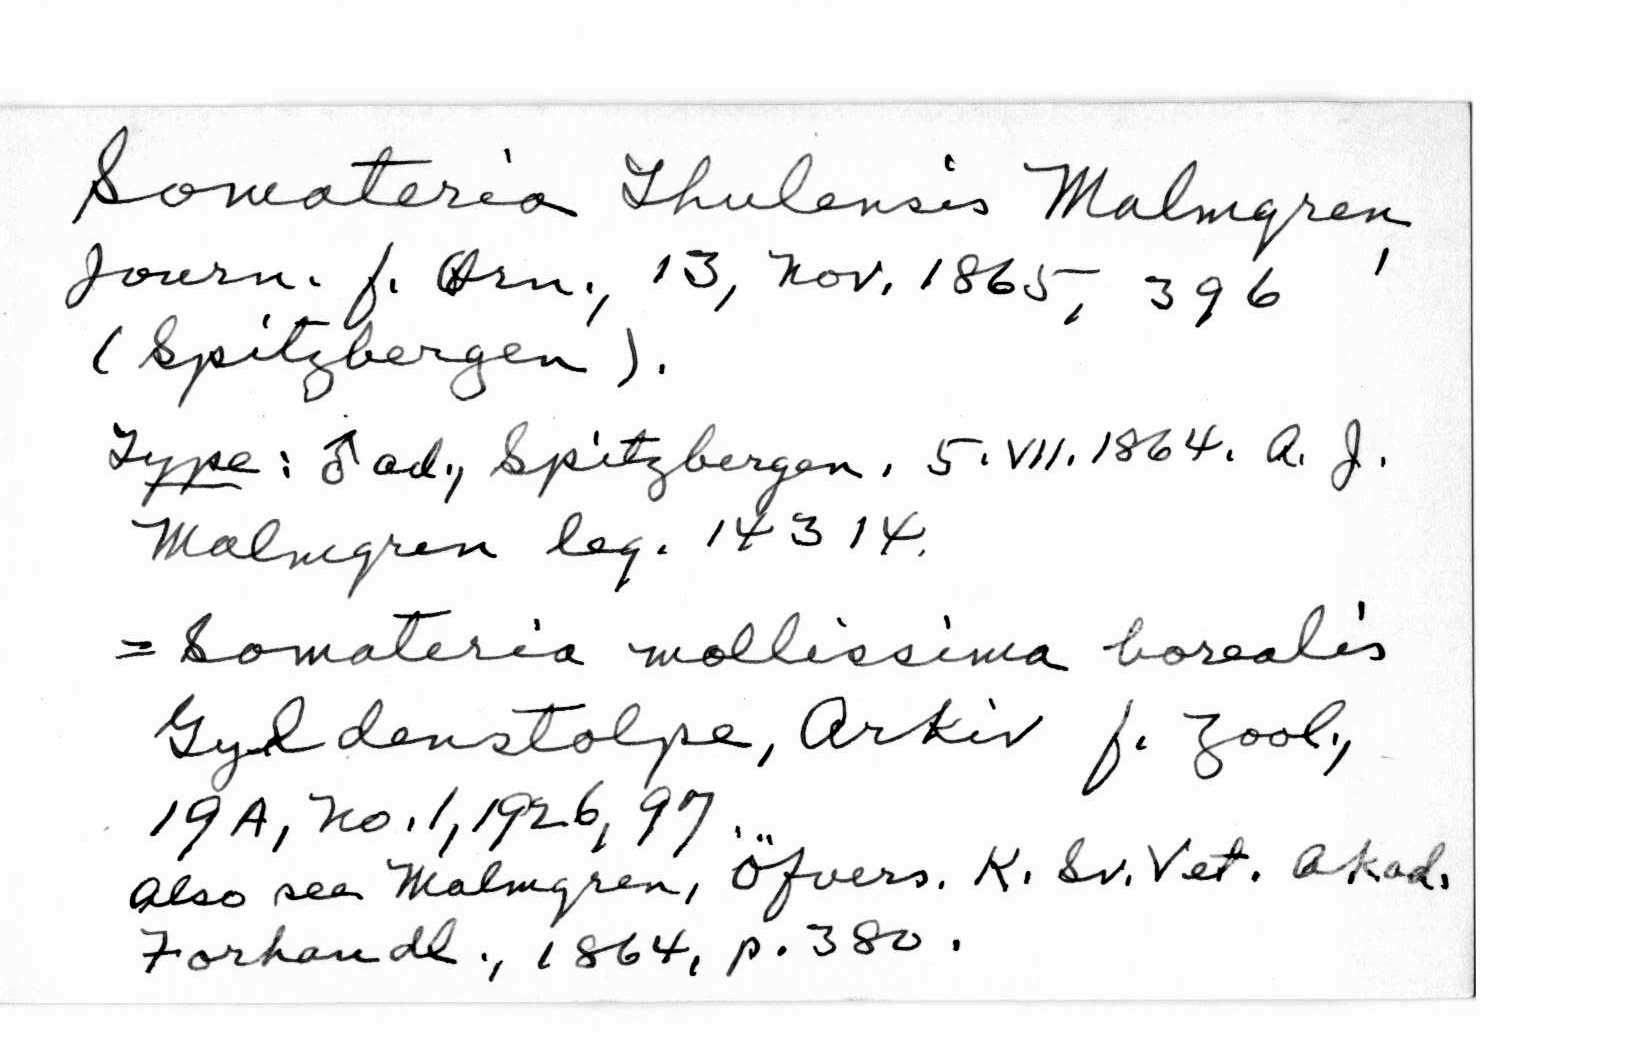 Somateria Thulensis Malmgren,
Journ. f. Orn., 13, Nov. 1865, 396
(Spitzbergen).
Type: ♂ ad., Spitzbergen. 5.VII.1864. A. J.
Malmgren leg. 14314.
= Somateria mollissima borealis
Gyldenstolpe, Arkiv f. Zool.,
19A, No.1, 1926, 97.
Also see Malmgren, Öfvers. K. Sv. Vet. Akad.
Forhandl., 1864, p. 380.